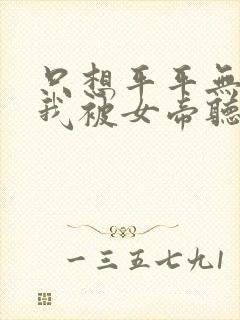 只想平平無
我被女帝聽
一三五七九1